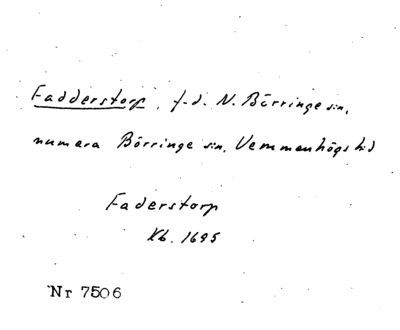 Fadderstorp, f.d. N. Börringe sn,
numera Börringe sn, Vemmenhögs hd
Faderstorp
Kb. 1695
Nr 7506